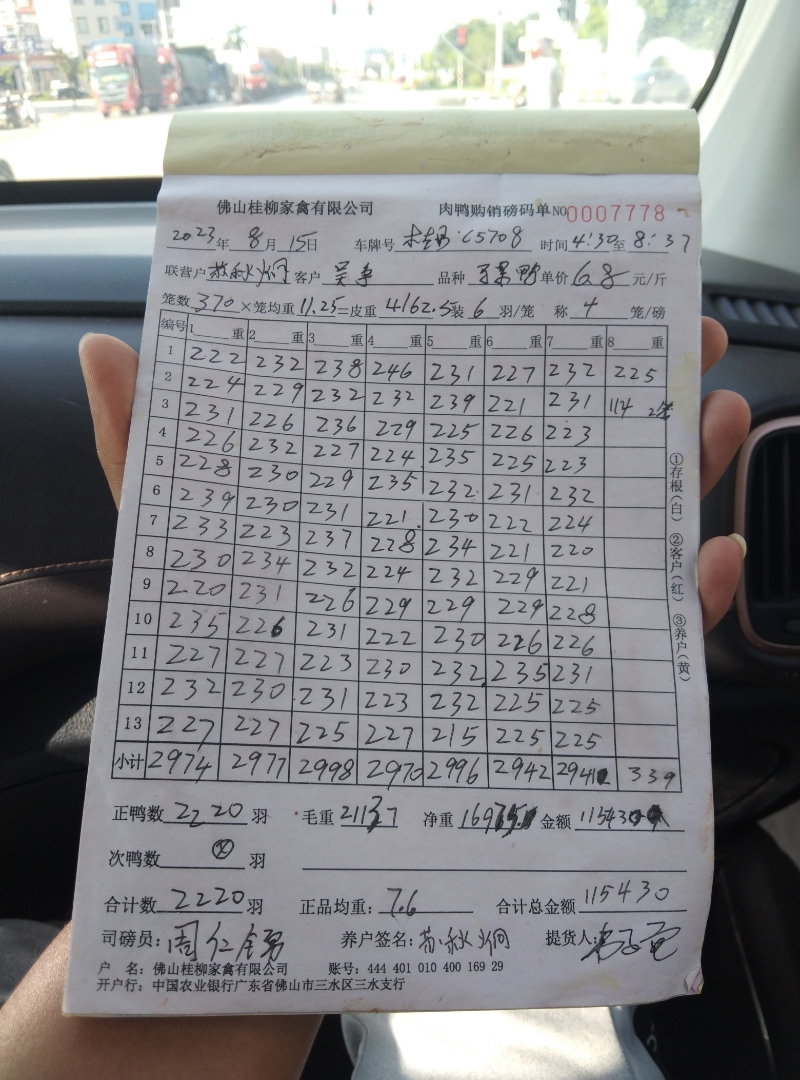 佛山桂柳家禽有限公司 肉鸭购销磅码单 NO 0007778
2023年 8月 15日 车牌号 C5708 时间 4:30 至 8:37
联营户 苏秋炯 客户 吴争 品种 鸭 单价 6.8 元/斤
笼数 370 ×笼均重 11.25 =皮重 4162.5 装 6 羽/笼 称 4 笼/磅
编号 1 重 2 重 3 重 4 重 5 重 6 重 7 重 8 重
1 222 232 238 246 231 227 232 225
2 224 229 232 232 239 221 231 114 2笼
3 231 226 236 229 225 226 223
4 226 232 227 224 235 225 223
5 228 230 229 235 232 231 232
6 239 230 231 221 230 222 224
7 233 223 237 228 234 221 220
8 230 234 232 224 232 229 221
9 220 231 226 229 229 229 228
10 235 226 231 222 230 226 226
11 227 227 223 230 232 235 231
12 232 230 231 223 232 225 225
13 227 227 225 227 215 225 225
小计 2974 2977 2998 2970 2996 2942 2941 339
①存根(白) ②客户(红) ③养户(黄)
正鸭数 2220 羽 毛重 21137 净重 金额
次鸭数 羽
合计数 2220 羽 正品均重: 7.6 合计总金额 115430
司磅员: 周仁 养户签名: 苏秋炯 提货人:
户 名: 佛山桂柳家禽有限公司 账号: 444 401 010 400 169 29
开户行: 中国农业银行广东省佛山市三水区三水支行